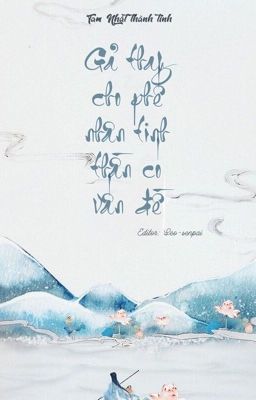 Tam Nhật Thành Tinh
Gả thay
cho phế
nhân tinh
thần có
vấn đề
Editor: Leo-senpai